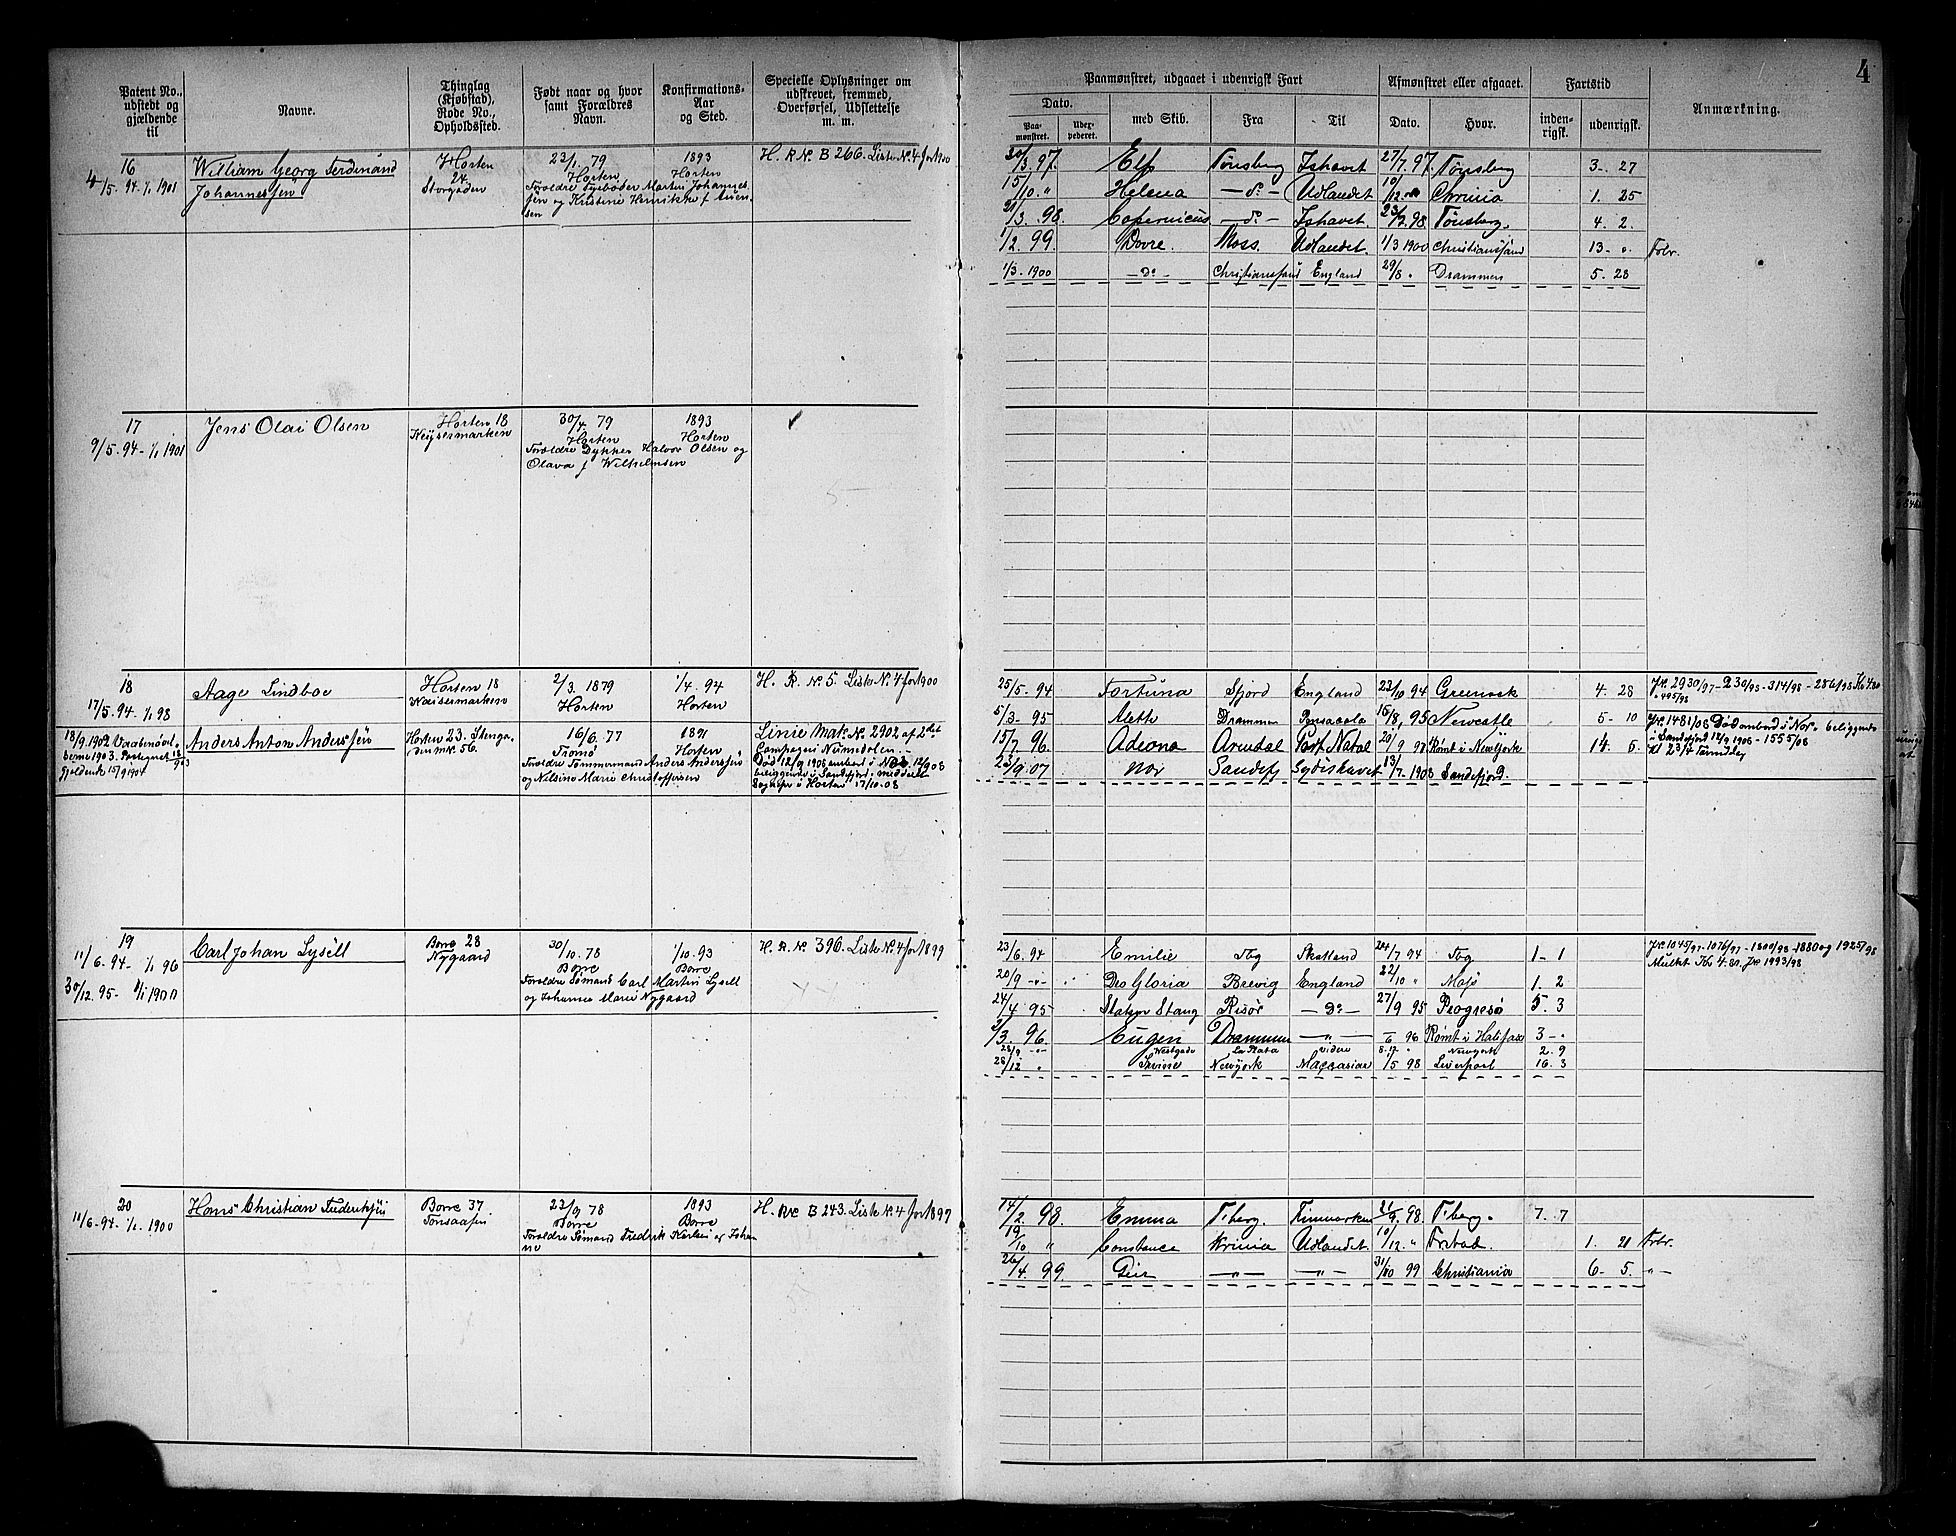 4
Patent No., udstedt og gjældende til
Navne.
Thinglag (Kjøbstad), Rode No., Opholdssted.
Født naar og hvor samt Forældres Navn.
Konfirmations-Aar og Sted.
Specielle Oplysninger om udskrevet, fremmed, Overførsel, Udslettelse m. m.
Paamønstret, udgaaet i udenrigsk Fart
Afmønstret eller afgaaet.
Fartstid
Anmærkning.
Dato.
Paa-mønstret.
Udex-pederet.
med Skib.
Fra
Til
Dato.
Hvor.
inden-rigsk.
udenrigsk.
16
4/5. 94 - 1/1 1901
William Georg Ferdinand
Johannessen
Horten
24
Storgaden
23/1. 79
Horten
1893
Horten
Forældre Tyebøder Martin Johannes-
sen og Kristine Henrikke f
H. R No B 266. Liste No 4 for 1900
30/3. 97. Elf Tønsberg Ishavet 27/7. 97. Tønsberg 3 - 27
15/10. " Helena - do - Udlandet 10/12 Chrinia 1. 25
21/3. 98. Copernicus - do - Ishavet 23/7. 98 Tønsberg. 4. 2.
1/2. 99. Dovre. Moss. Udlandet. 1/3 1900 Christianssand 13 - " Folr.
1/3. 1900 - Do Christianssand England 29/8 " Drammen 5. 28
17
9/5. 94 - 1/1 1901
Jens Olai Olsen
Horten 18
Keysermarken
30/4. 79
Horten
1893
Horten
Forældre Dykker Halvor Olsen og
Olava f Wilhelmsen
18
17/5. 94 - 1/1 98
Aage Lindboe
Horten 18
Kaisermarken
2/3. 1879
Horten
1/4. 94
Horten
H. R. No 5. Liste No 4 for 1900
25/5. 94 Fortuna Fjord England 23/10 94 Greenock 4. 28
5/3 - 95 Aleth Drammen Pensacola 16/8, 95 Newcastle 5 - 10
15/7. 96. Adeona Arendal Port Natal 20/9 97 Rømt i New York 14. 5
23/9. 07 Nor Sandefj Sydishavet 13/7 - 1908 Sandefjord.
Jr. 2930/97 - 230/98 - 314/98 - 286/98 Ks 4.80
" 495/98
Jr. 1481/08 Død ombord i Nor - beliggende
i Sandefjord 12/9 1908 - 1555/08
18/9. 1902
gjeldende 15/9 1904
Anders Anton Anderssen
Horten 23. Stenga-
den mk. 56.
16/6. 77
Tromø
1891
Horten
Forældre Tømmermand Anders Anderssen
og Nilsine Marie Christoffersen
Linie Mat. No 2902 af 2det
Compagni Numedalen. -
Død 12/9 1908 ombord i Nor 12/9 08
beliggende i Sandefjord, meddelt
Sogneprs i Horten 17/10 - 08
19
11/6. 94. - 1/1 96
30/12. 95 - 1/1 1900
Carl Johan Lysell
Borre 28
Nygaard
30/10. 78
Borre
1/10. 93
Borre
Forældre Sømand Carl Martin Lysell
og Johanne Marie Nygaard
H. R. No 396. Liste No 4 for 1899
23/6. 94 Emilie Tbg Skotland 24/7 94 Tbg 1 - 1
20/9 - " - Deo Gloria Brevig England 22/10 " Moss 1. 2
24/4 95 Statsr Stang Risør - Do - 27/9 95 Progreso 5. 3
2/3. 96. Eugen Drammen - " - 96 Rømt i Halifax 3 - "
28/9 - " - Westgate La Plata videre 8-12 " Newyork 2. 9
28/12 " Newyork 1/5 98 Liverpool 16. 3
Jr. 1045/97 - 1076/97 - 1800/98 - 1880 og 1925/98
Mulkt Ks 4.80. Jr 1993/98
20
11/6 - 94. 1/1. 1900
Hans Christian Frederiksen
Borre 37
22/9. 78
Borre
1893
Borre
Forældre Sømand Fredrik Karlsen og Johan-
ne
H. R No B 243. Liste No 4 for 1897
14/2. 98. Emma T.berg. Finmarken 21/9. 98. T.berg. 7. 7
19/10 " Constance Krinia Udlandet. 10/12. " 1. 21 Folr.
26/4. 99 Geir - " - - " - 31/10 99 Christiania 6 - 5. - " -